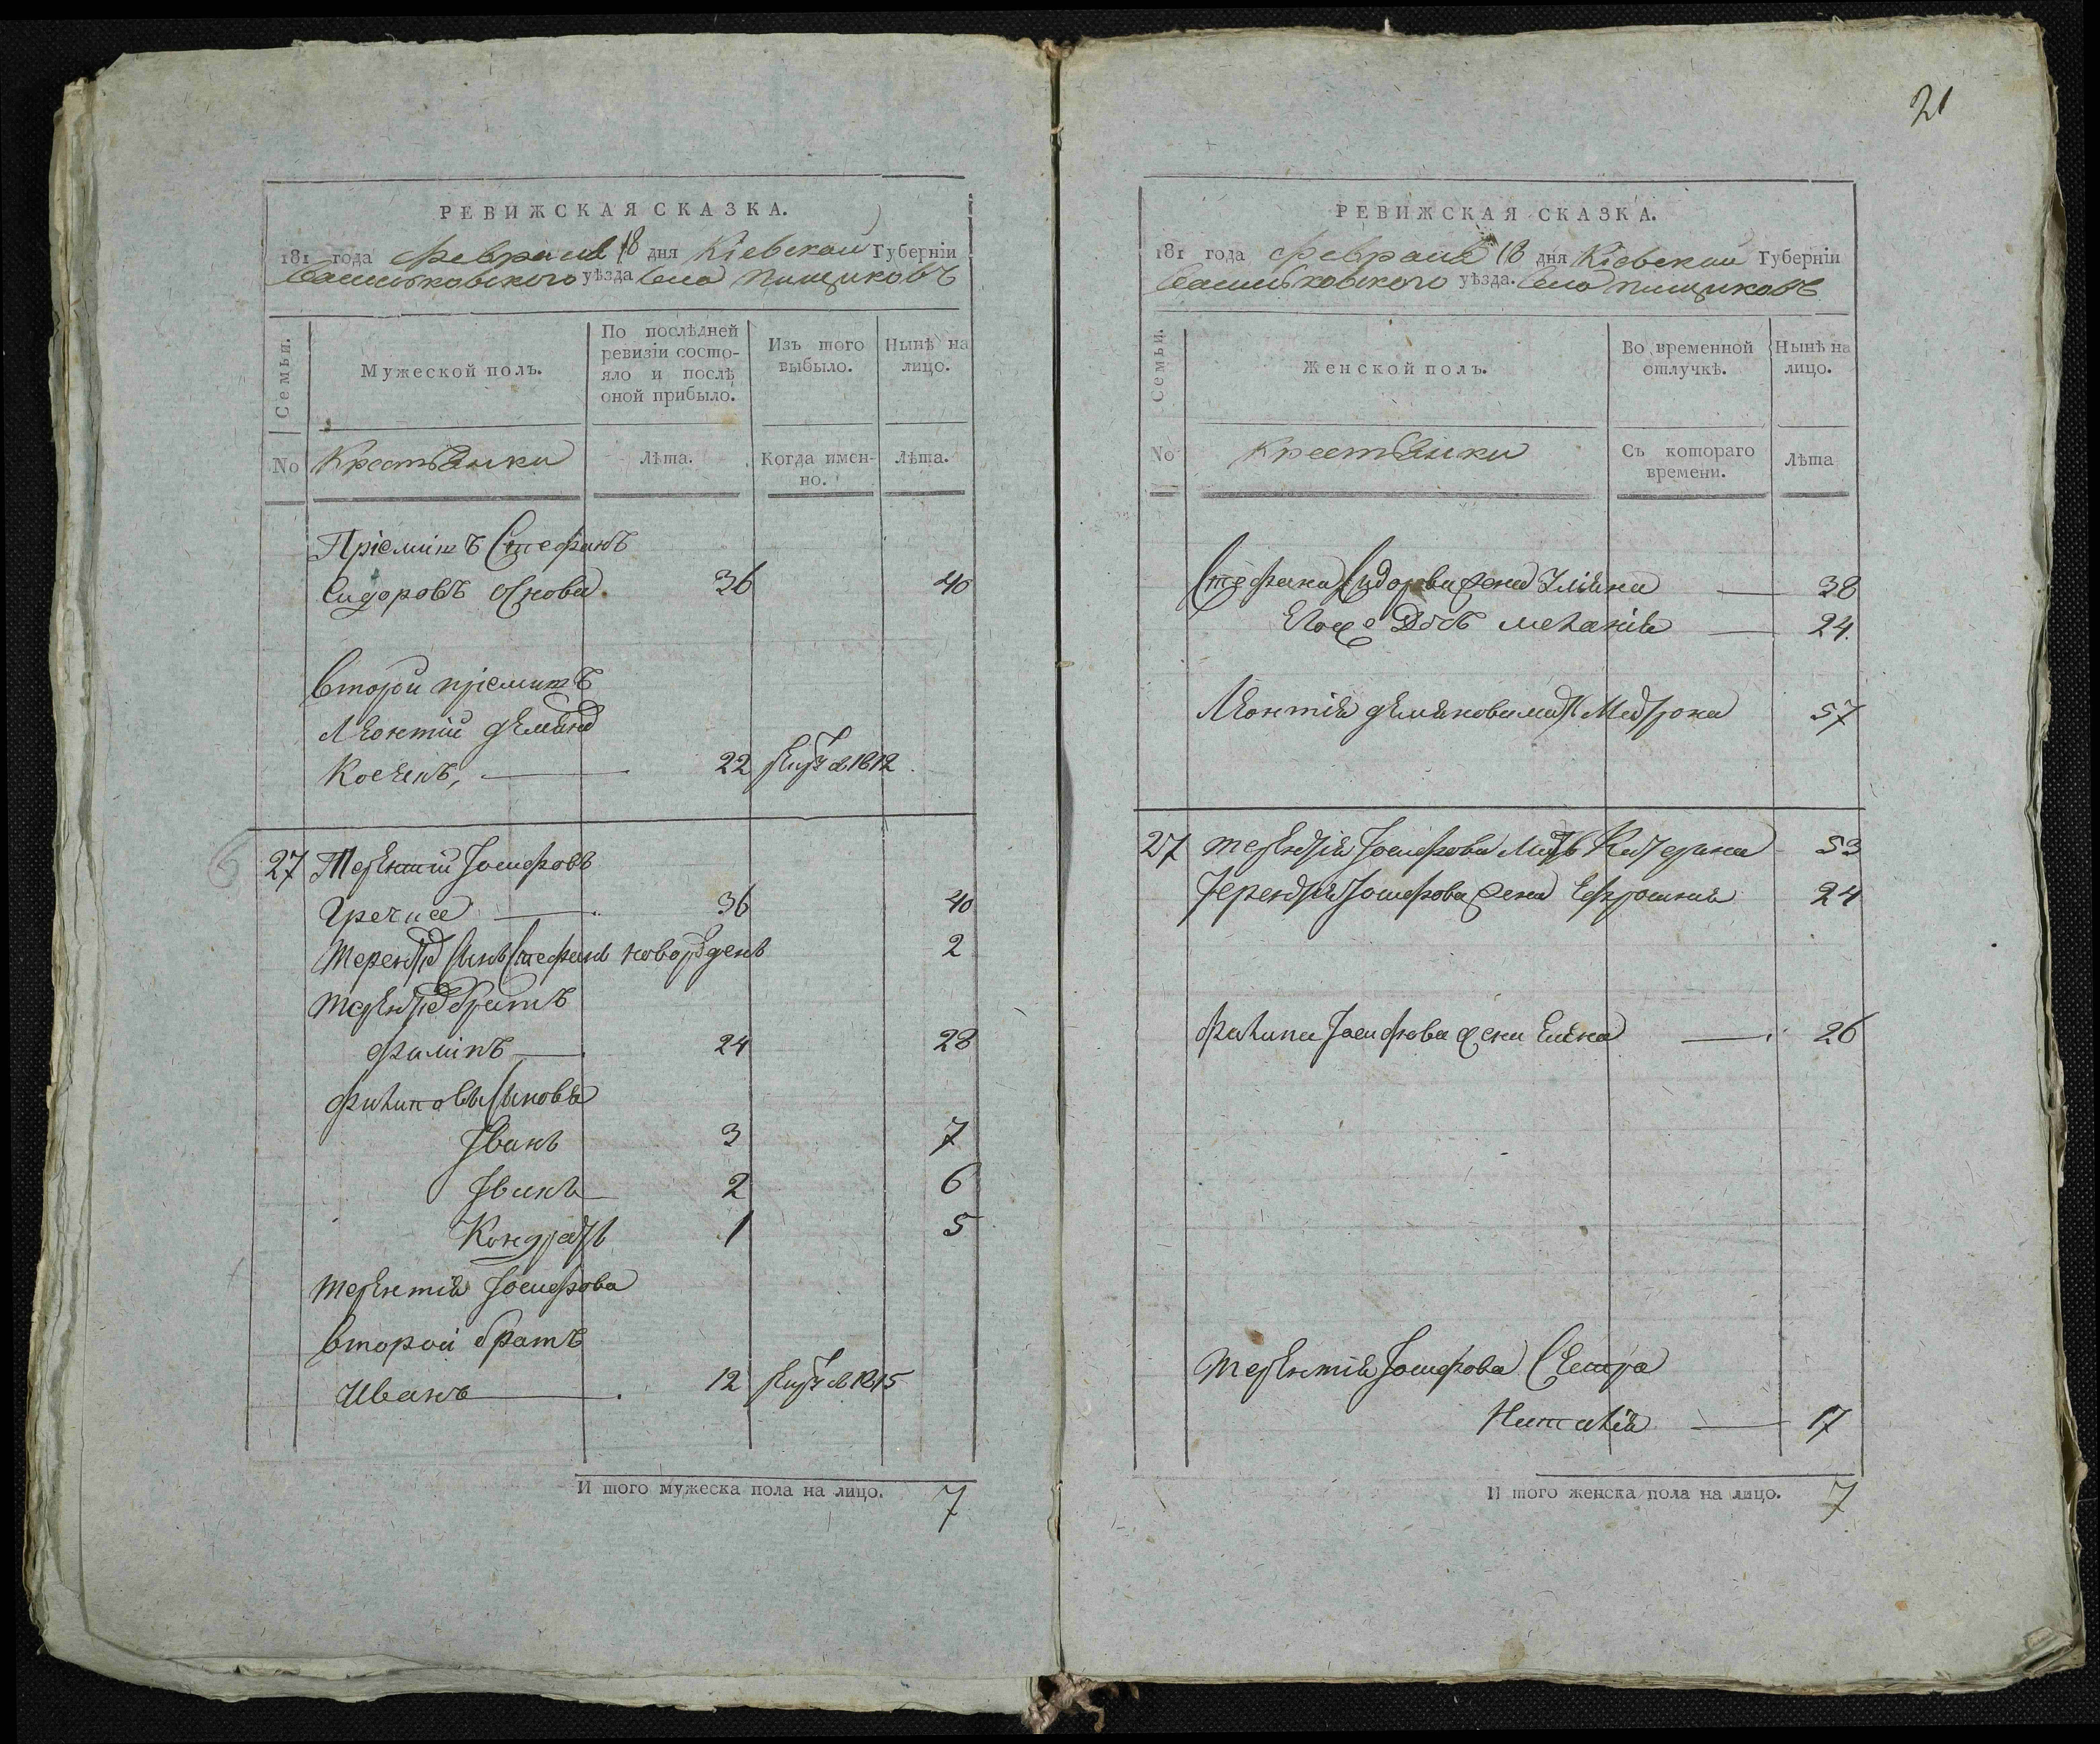 РЕВИЖСКАЯ СКАЗКА.
181 года февраля 18 дня Кіевской Губерніи
Васильковского уѣзда Села Пищиковъ
Семьи.
Мужеской полъ.
По послѣдней ревизіи состо-
яло и послѣ
оной прибыло.
Изъ того
выбыло.
Нынѣ на
лицо.
No
Крестьянки
Лѣта.
Когда имен-
но.
Лѣта.
Пріемитъ Стефанъ
Сидоровъ 36 40
второй пріемитъ
Леонтій
22 1812
27 Терентій Іосифовъ
36 40
Стефанъ новорожденъ 2
братъ
Филипъ 24 28
Филиповы Сыновья
Іванъ 3 7
Іванъ 2 6
Кондратъ 1 5
Терентія Іосифова
второй братъ
Иванъ 12 1815
И того мужеска пола на лицо. 7
21
РЕВИЖСКАЯ СКАЗКА.
181 года февраля 18 дня Кіевской Губерніи
Васильковского уѣзда. Села Пищиковъ
Семьи.
Женской полъ.
Во временной
отлучкѣ.
Нынѣ на
лицо.
No
Крестьянки
Съ котораго
времени.
Лѣта
Стефана Сидорова жена Уліяна 38
Его же дочь Меланія 24
Леонтія мать 57
27 Терентія Іосифова мать Катерина 53
Терентія Іосифова жена Ефросинія 24
Филипа Іосифова жена Елена 26
Терентія Іосифова Сестра
Наталія 17
И того женска пола на лицо. 7